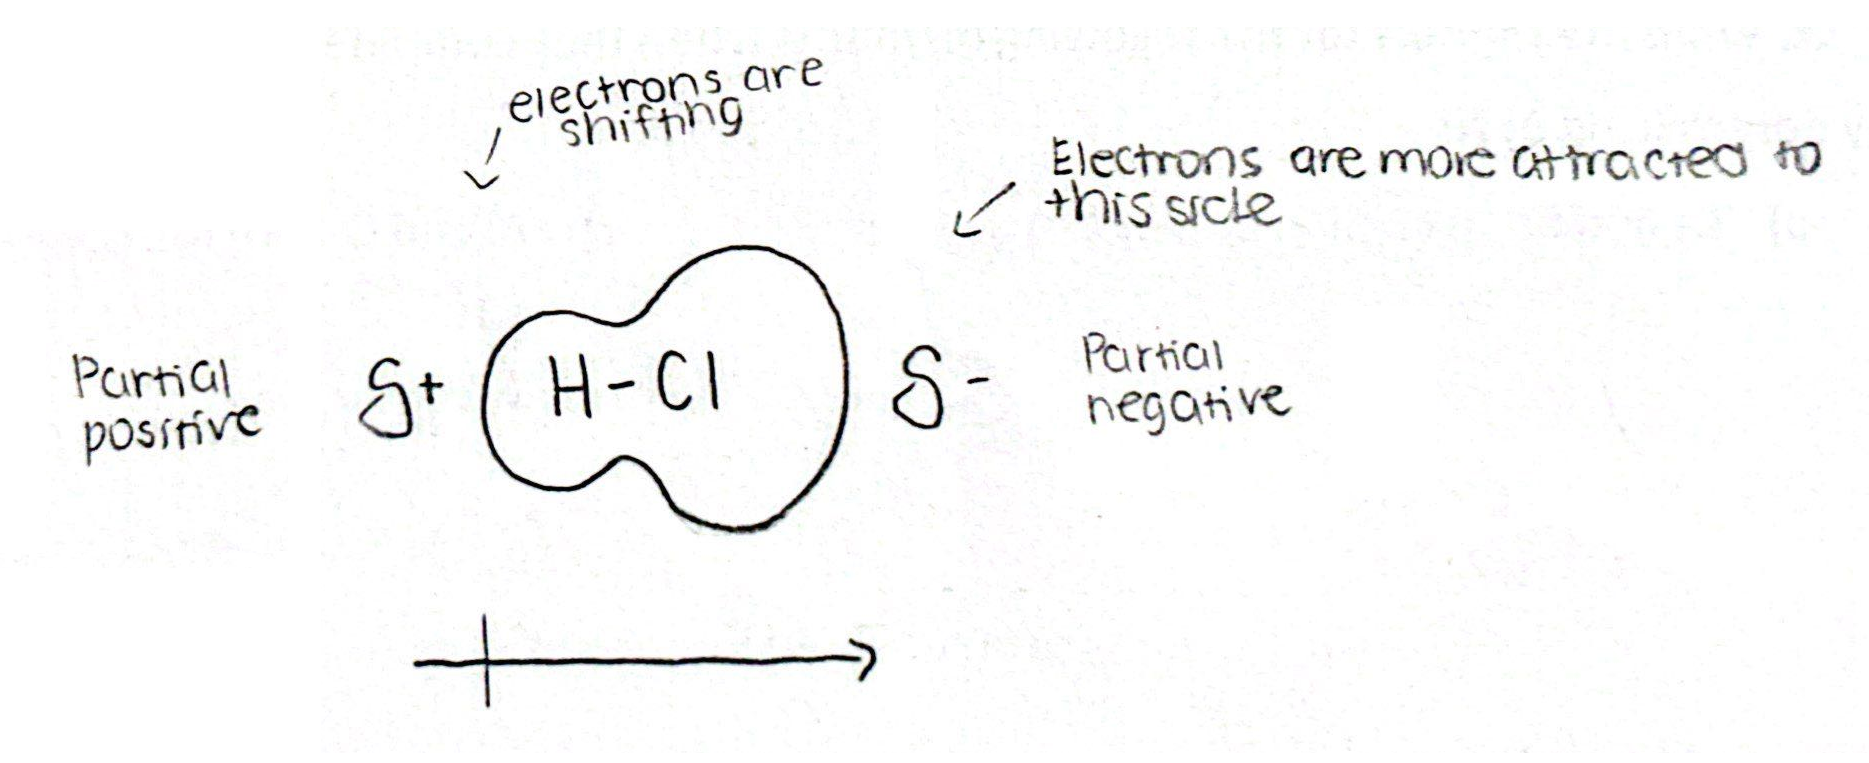 electrons are
shifting
Electrons are more attracted to
this side
Partial
positive
δ+
H-Cl
δ-
Partial
negative